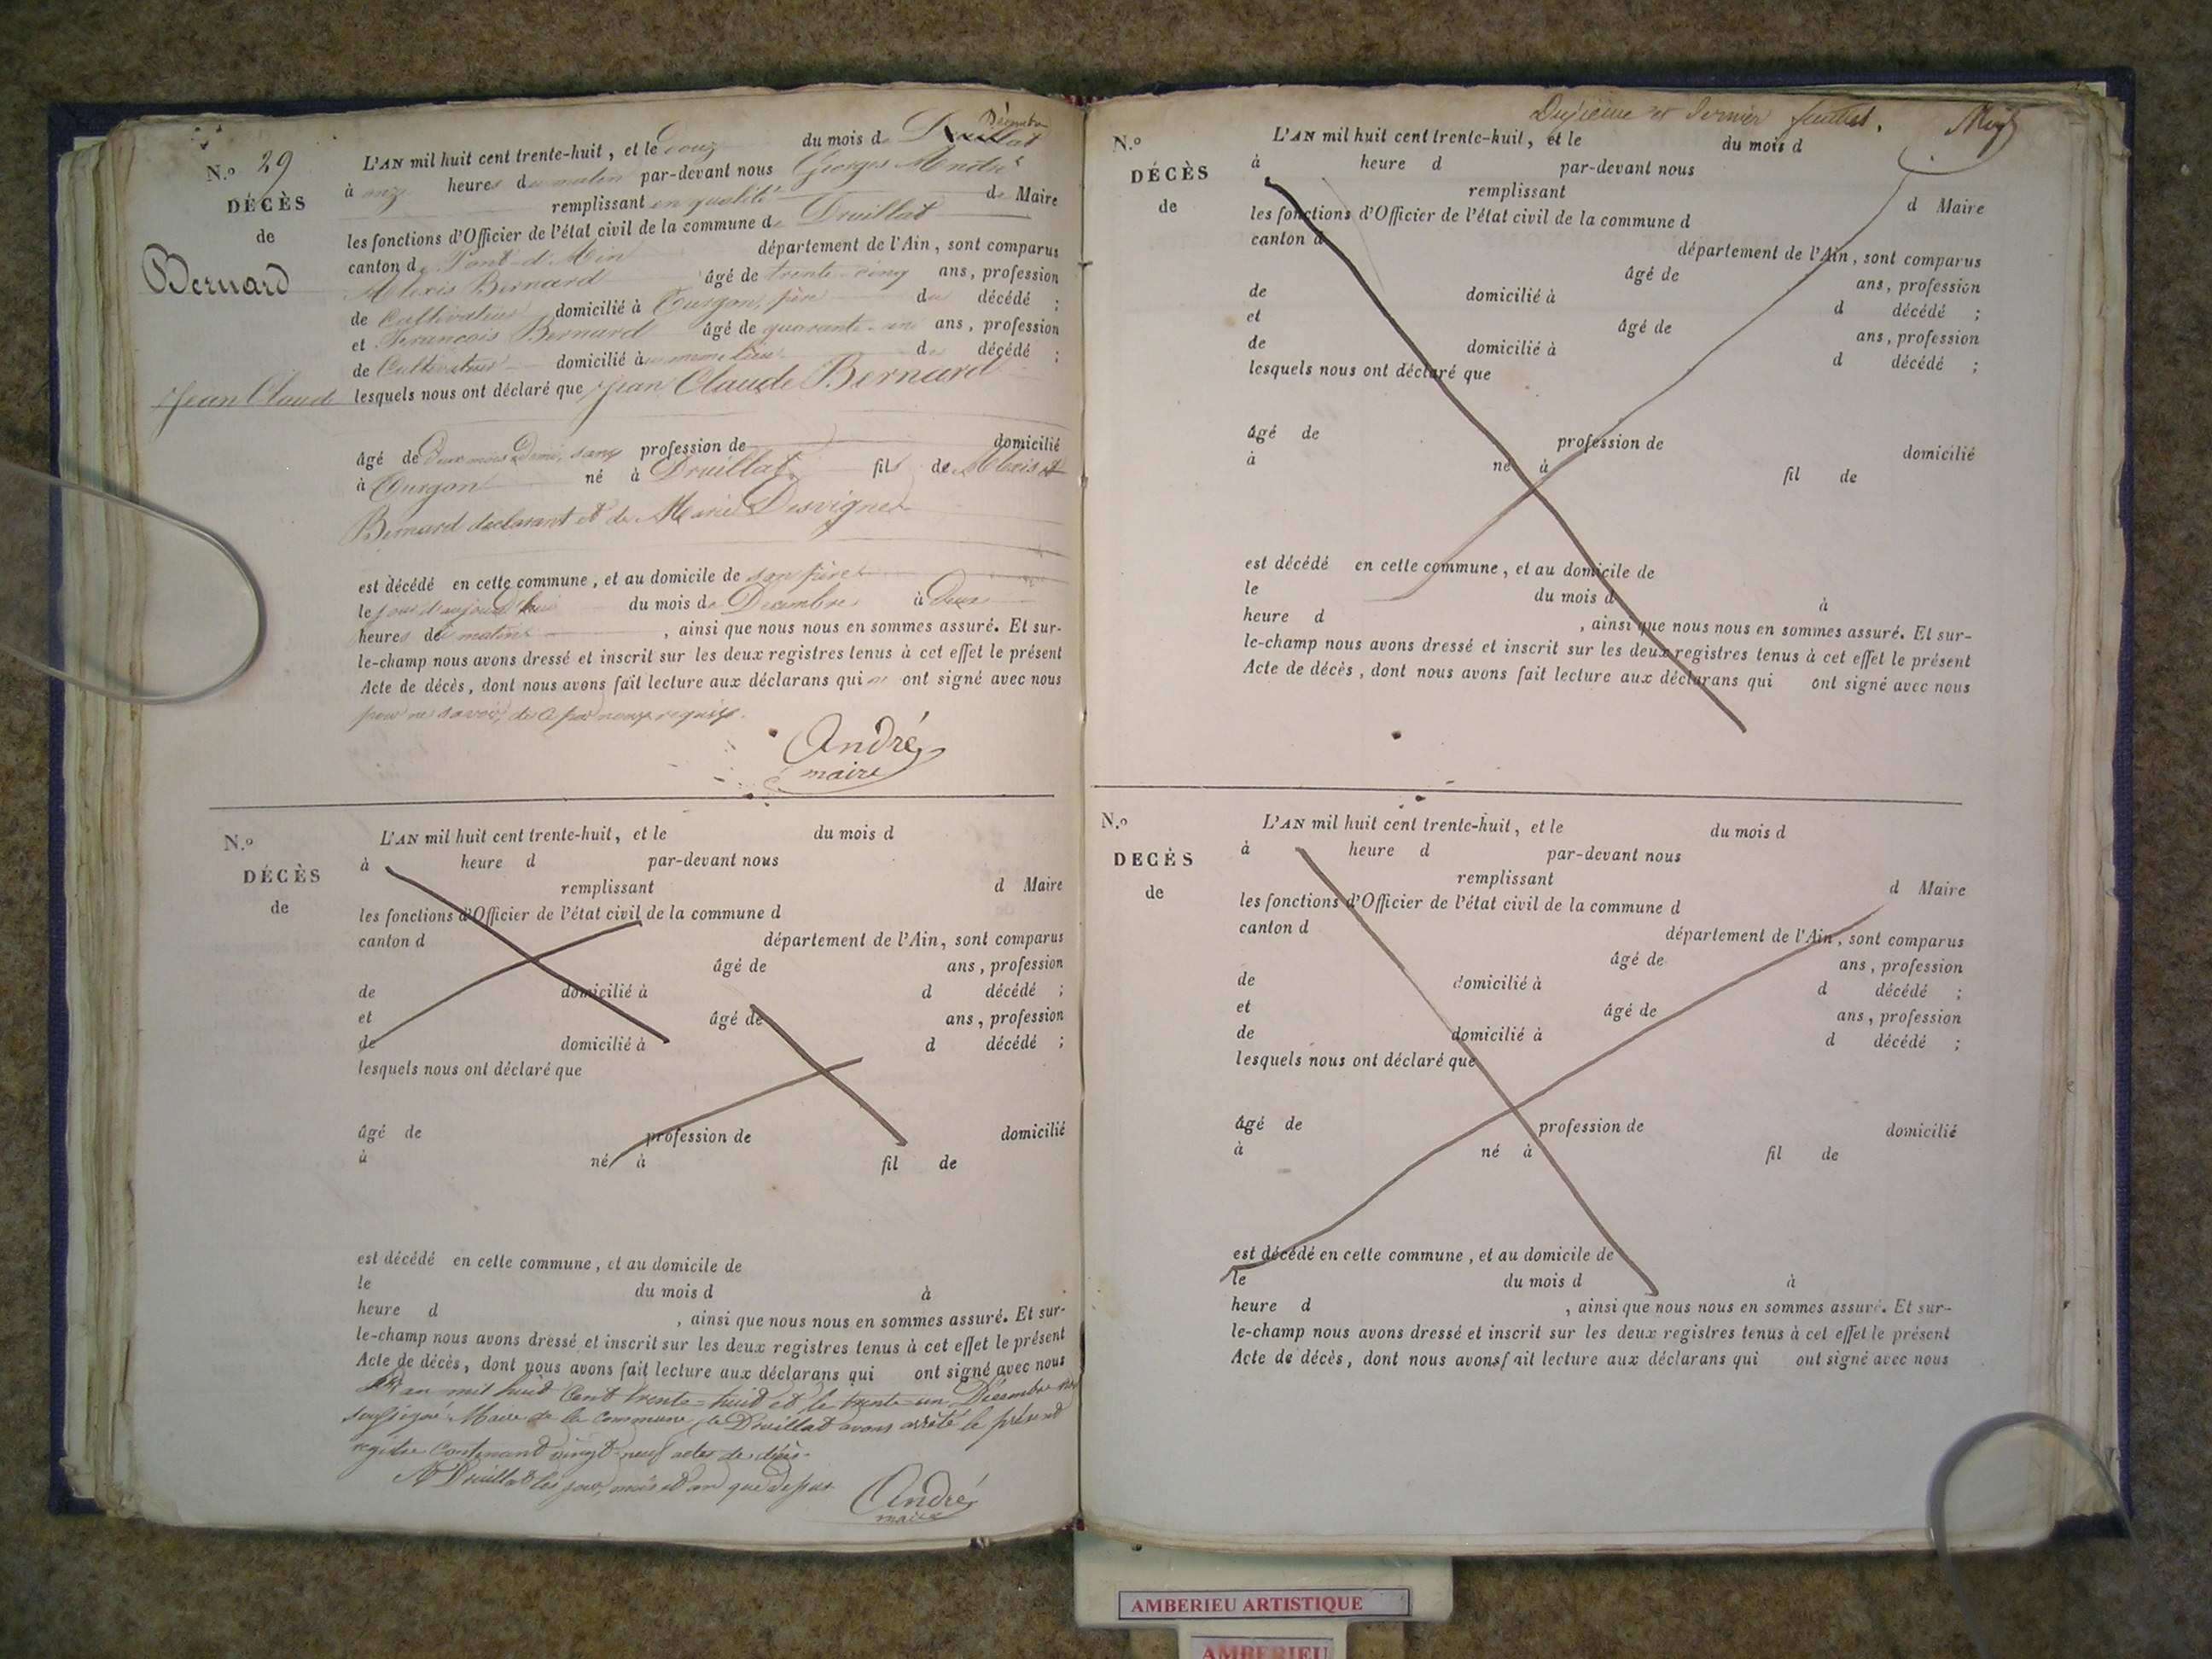 N.º 29
DÉCÈS
de
Bernard
Jean Claude
L'AN mil huit cent trente-huit, et le douze du mois de Druillat Décembre
à onze heures du matin par-devant nous Georges André
remplissant en qualité de Maire
les fonctions d'Officier de l'état civil de la commune de Druillat
canton de Pont-d'Ain département de l'Ain, sont comparus
Alexis Bernard âgé de trente-cinq ans, profession
de Cultivateur domicilié à Turgon, père du décédé ;
et Francois Bernard âgé de quarante-un ans, profession
de Cultivateur domicilié au même lieu d décédé ;
lesquels nous ont déclaré que Jean Claude Bernard
âgé de deux mois Demi, sans profession de domicilié
à Turgon né à Druillat fils de Alexis
Bernard declarant et de Marie Desvignes
est décédé en cette commune, et au domicile de son père
le jour d'aujourd'hui du mois de Décembre à deux
heures du matin , ainsi que nous nous en sommes assuré. Et sur-
le-champ nous avons dressé et inscrit sur les deux registres tenus à cet effet le présent
Acte de décès, dont nous avons fait lecture aux déclarans qui n' ont signé avec nous
pour ne savoir, de ce par nous requis.
André
maire
N.º
DÉCÈS
de
L'AN mil huit cent trente-huit, et le du mois d
à heure d par-devant nous
remplissant d Maire
les fonctions d'Officier de l'état civil de la commune d
canton d département de l'Ain, sont comparus
âgé de ans, profession
de domicilié à d décédé ;
et âgé de ans, profession
de domicilié à d décédé ;
lesquels nous ont déclaré que
âgé de profession de domicilié
à né à fil de
est décédé en cette commune, et au domicile de
le du mois d à
heure d , ainsi que nous nous en sommes assuré. Et sur-
le-champ nous avons dressé et inscrit sur les deux registres tenus à cet effet le présent
Acte de décès, dont nous avons fait lecture aux déclarans qui ont signé avec nous
L'an mil huit Cent trente-huit et le trente-un Décembre nous
soussigné Maire de la commune de Druillat avons arrêté le présent
registre contenant vingt-neuf actes de décès.
A Druillat les jour, mois et an que dessus
André
maire
Dixième et dernier feuillet.
N.º
DÉCÈS
de
L'AN mil huit cent trente-huit, et le du mois d
à heure d par-devant nous
remplissant d Maire
les fonctions d'Officier de l'état civil de la commune d
canton d département de l'Ain, sont comparus
âgé de ans, profession
de domicilié à d décédé ;
et âgé de ans, profession
de domicilié à d décédé ;
lesquels nous ont déclaré que
âgé de profession de domicilié
à né à fil de
est décédé en cette commune, et au domicile de
le du mois d à
heure d , ainsi que nous nous en sommes assuré. Et sur-
le-champ nous avons dressé et inscrit sur les deux registres tenus à cet effet le présent
Acte de décès, dont nous avons fait lecture aux déclarans qui ont signé avec nous
N.º
DECÈS
de
L'AN mil huit cent trente-huit, et le du mois d
à heure d par-devant nous
remplissant d Maire
les fonctions d'Officier de l'état civil de la commune d
canton d département de l'Ain, sont comparus
âgé de ans, profession
de domicilié à d décédé ;
et âgé de ans, profession
de domicilié à d décédé ;
lesquels nous ont déclaré que
âgé de profession de domicilié
à né à fil de
est décédé en cette commune, et au domicile de
le du mois d à
heure d , ainsi que nous nous en sommes assuré. Et sur-
le-champ nous avons dressé et inscrit sur les deux registres tenus à cet effet le présent
Acte de décès, dont nous avons fait lecture aux déclarans qui ont signé avec nous
AMBERIEU ARTISTIQUE
AMBERIEU